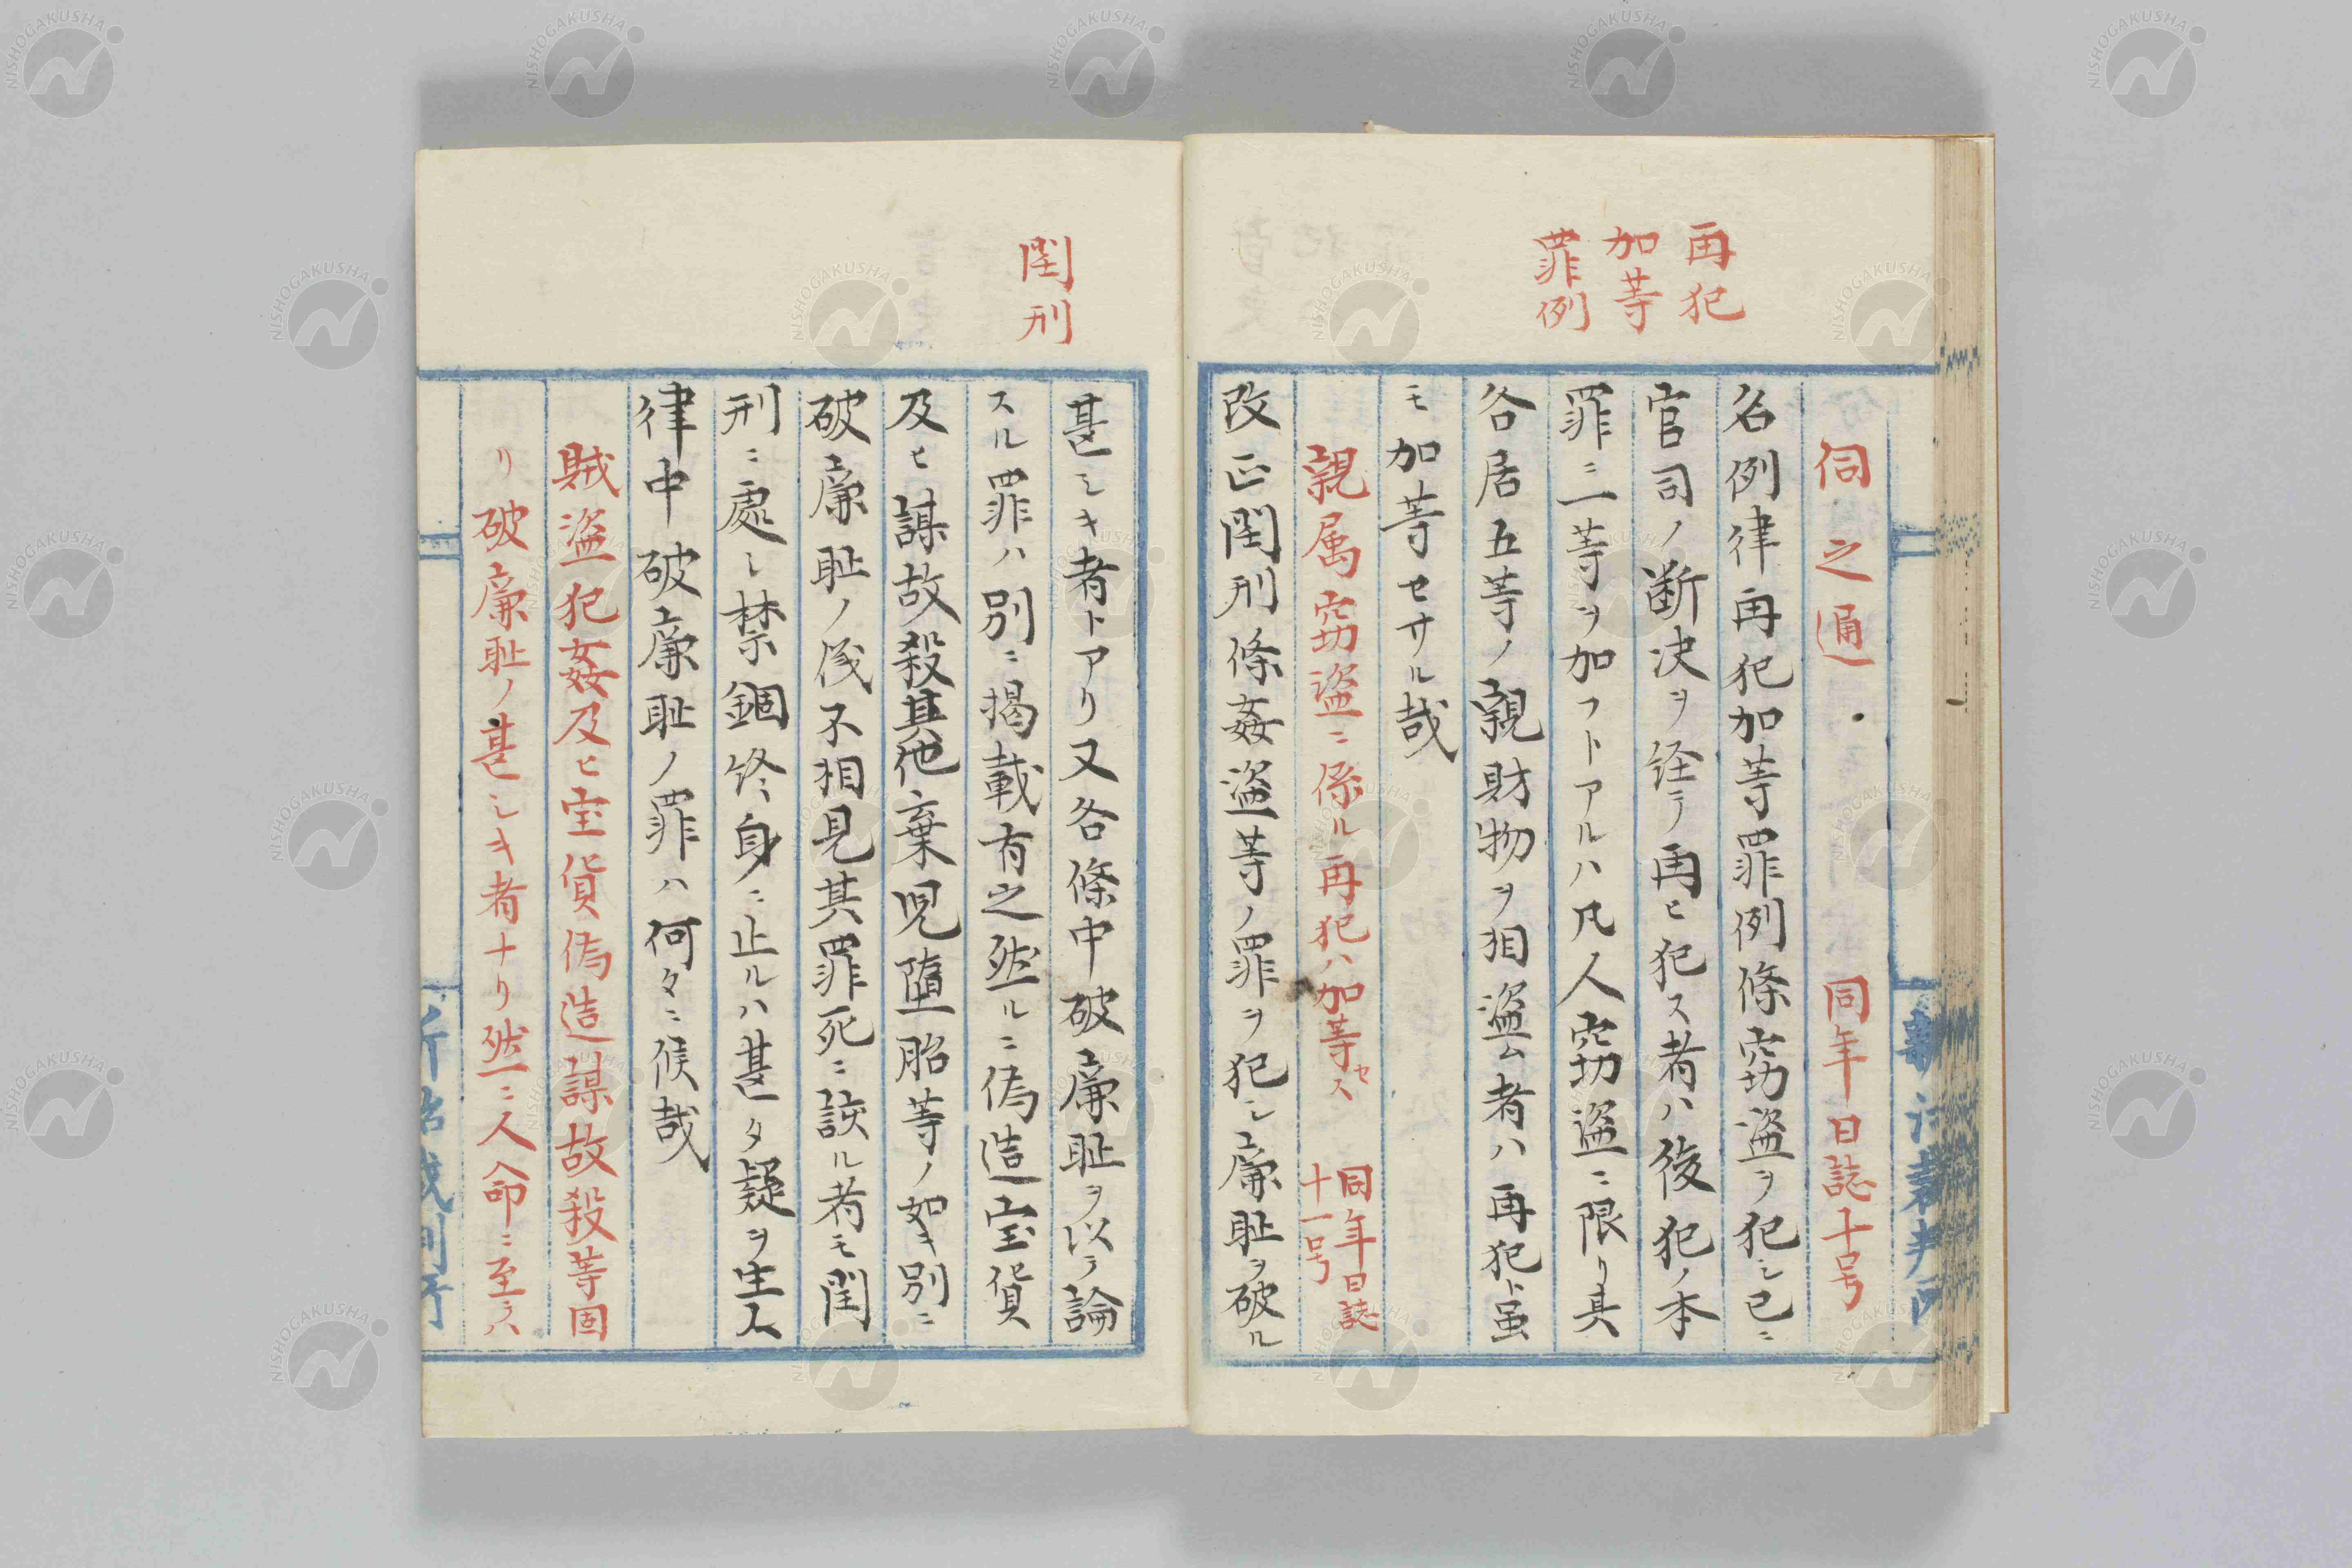 再犯
加等
罪例
伺之通 同年日誌十号
名例律再犯加等罪例條窃盗ヲ犯シ已ニ
官司ノ断決ヲ経テ再ヒ犯ス者ハ後犯ノ本
罪ニ一等ヲ加フトアルハ凡人窃盗ニ限リ具
各居五等ノ親財物ヲ相盗ム者ハ再犯ト虽
モ加等セサル哉
親属窃盗ニ係ル再犯ハ加等セス 同年日誌
十一号
改正閏刑條姦盗等ノ罪ヲ犯シ廉耻ヲ破ル
閏刑
甚シキ者トアリ又各條中破廉耻ヲ以テ論
スル罪ハ別ニ掲載有之然ルニ偽造宝貨
及ヒ謀故殺其他棄児堕胎等ノ如キ別ニ
破廉耻ノ儀不相見其罪死ニ該ル者モ閏
刑ニ處シ禁錮終身ニ止ルハ甚タ疑ヲ生ス
律中破廉耻ノ罪ハ何々ニ候哉
賊盗犯姦及ヒ宝貨偽造謀故殺等固
リ破廉耻ノ甚シキ者ナリ然ニ人命ニ至テハ
NISHOGAKUSHA